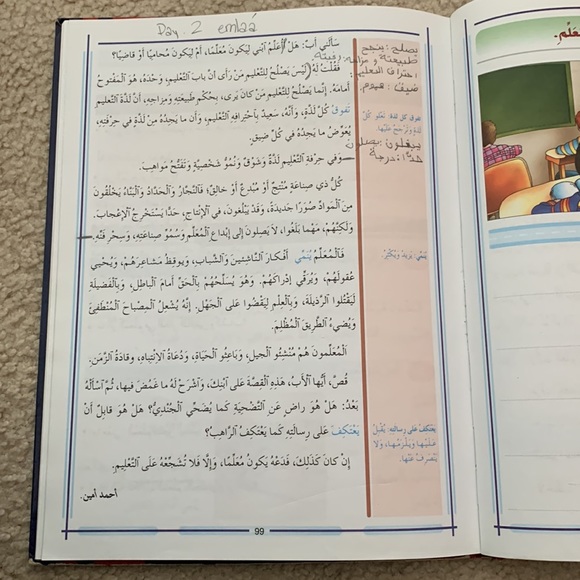 Day: 2 emlaá
سَأَلَني أَبٌ: هَلْ أُعَلِّمُ ٱبْني لِيَكونَ مُعَلِّمًا، أَمْ لِيَكونَ مُحامِيًا أَوْ قاضِيًا؟
فَقُلْتُ لَهُ: لَيْسَ يَصْلُحُ لِلتَّعْليمِ مَنْ رَأى أَنَّ بابَ التَّعْليمِ، وَحْدَهُ، هُوَ ٱلْمَفْتوحُ
أَمامَهُ. إِنَّما يَصْلُحُ لِلتَّعْليمِ مَنْ كانَ يَرى، بِحُكْمِ طَبيعَتِهِ وَمِزاجِهِ، أَنَّ لَذَّةَ ٱلتَّعْليمِ
تَفوقُ كُلَّ لَذَّةٍ، وَأَنَّهُ، سَعيدٌ بِٱحْتِرافِهِ ٱلتَّعْليمَ، وَأَنَّ ما يَجِدُهُ مِنْ لَذَّةٍ في حِرْفَتِهِ،
يُعَوِّضُ ما يَجِدُهُ في كُلِّ ضيقٍ.
وَفي حِرْفَةِ ٱلتَّعْليمِ لَذَّةٌ وَشَوْقٌ وَنُمُوُّ شَخْصِيَّةٍ وَتَفَتُّحُ مَواهِبَ.
كُلُّ ذي صِناعَةٍ مُنْتِجٌ أَوْ مُبْدِعٌ أَوْ خالِقٌ؛ فَٱلنَّجّارُ وَٱلْحَدّادُ وَٱلْبَنّاءُ يَخْلُقونَ
مِنَ ٱلْمَوادِّ صُوَرًا جَديدَةً، وَقَدْ يَبْلُغونَ، في ٱلْإِنْتاجِ، حَدًّا يَسْتَخْرِجُ ٱلْإِعْجابَ.
وَلٰكِنَّهُمْ، مَهْما بَلَغوا، لا يَصِلونَ إِلى إِبْداعِ ٱلْمُعَلِّمِ وَسُمُوِّ صِناعَتِهِ، وَسِحْرِ فَنِّهِ.
فَٱلْمُعَلِّمُ يُنَمّي أَفْكارَ ٱلنّاشِئينَ وَٱلشَّبابِ، وَيوقِظُ مَشاعِرَهُمْ، وَيُحْيي
عُقولَهُمْ، وَيُرَقّي إِدْراكَهُمْ. وَهُوَ يُسَلِّحُهُمْ بِٱلْحَقِّ أَمامَ ٱلْباطِلِ، وَبِٱلْفَضيلَةِ
لِيَقْتُلوا ٱلرَّذيلَةَ، وَبِٱلْعِلْمِ لِيَقْضوا عَلى ٱلْجَهْلِ. إِنَّهُ يُشْعِلُ ٱلْمِصْباحَ ٱلْمُنْطَفِئَ
وَيُضيءُ ٱلطَّريقَ ٱلْمُظْلِمَ.
ٱلْمُعَلِّمونَ هُمْ مُنْشِئو الجيلِ، وَباعِثو ٱلْحَياةِ، وَدُعاةُ ٱلِٱنْتِباهِ، وَقادَةُ ٱلزَّمَنِ.
قُصَّ، أَيُّها ٱلْأَبُ، هَذِهِ ٱلْقِصَّةَ عَلى ٱبْنِكَ، وَٱشْرَحْ لَهُ ما غَمُضَ فيها، ثُمَّ ٱسْأَلْهُ
بَعْدُ: هَلْ هُوَ راضٍ عَنِ ٱلتَّضْحِيَةِ كَما يُضَحّي ٱلْجُنْدِيُّ؟ هَلْ هُوَ قابِلٌ أَنْ
يَعْتَكِفَ عَلى رِسالَتِهِ كَما يَعْتَكِفُ ٱلرّاهِبُ؟
إِنْ كانَ كَذٰلِكَ، فَدَعْهُ يَكونُ مُعَلِّمًا، وَإِلّا فَلا تُشَجِّعْهُ عَلى ٱلتَّعْليمِ.
أحمد أمين.
يصلح: ينجح
احتراف التعليم
يبلغون: يصلون
حدًّا: درجة
يُنَمّي: يَزيدُ وَيُكَثِّرُ.
يَعْتَكِفُ عَلى رِسالَتِهِ: يُقْبِلُ
عَلَيْها وَيَلْزَمُها، وَلا
يَنْصَرِفُ عَنْها.
99